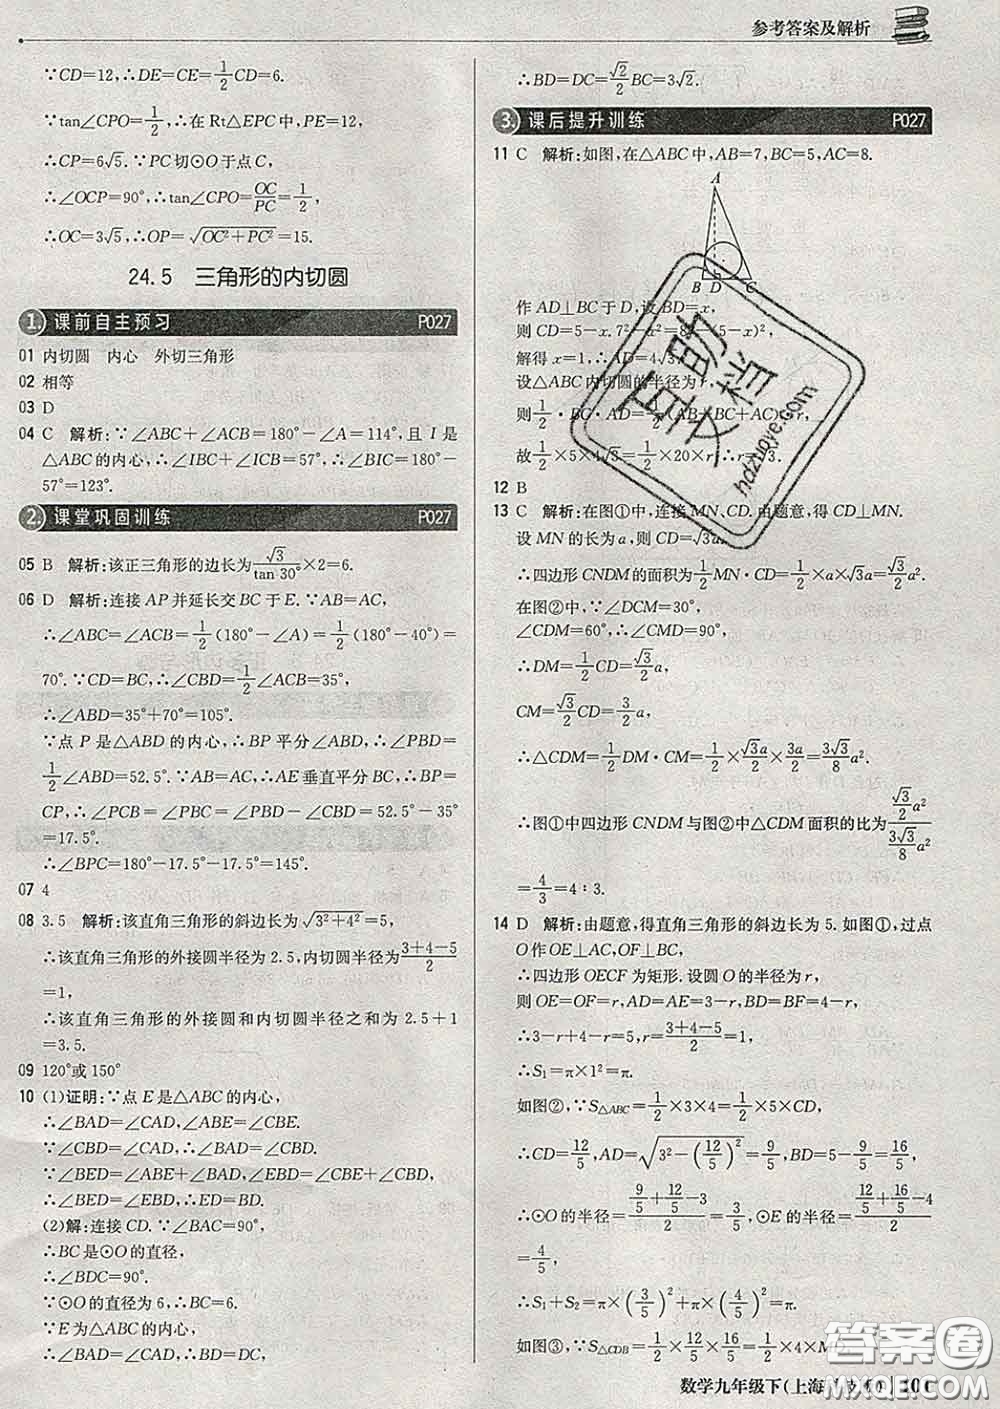 参考答案及解析
∵CD=12,∴DE=CE=1/2CD=6.
∵tan∠CPO=1/2,∴在 Rt△EPC 中,PE=12,
∴CP=6√5.∵PC 切⊙O 于点 C,
∴∠OCP=90°,∴tan∠CPO=OC/PC=1/2,
∴OC=3√5,∴OP=√(OC²+PC²)=15.
24.5 三角形的内切圆
1. 课前自主预习 P027
01 内切圆 内心 外切三角形
02 相等
03 D
04 C 解析:∵∠ABC+∠ACB=180°-∠A=114°,且 I 是
△ABC 的内心,∴∠IBC+∠ICB=57°,∴∠BIC=180°-
57°=123°.
2. 课堂巩固训练 P027
05 B 解析:该正三角形的边长为√3/tan 30°×2=6.
06 D 解析:连接 AP 并延长交 BC 于 E.∵AB=AC,
∴∠ABC=∠ACB=1/2(180°-∠A)=1/2(180°-40°)=
70°.∵BD=CD,∴∠CBD=1/2∠ACB=35°,
∴∠ABD=35°+70°=105°.
∵点 P 是△ABD 的内心,∴BP 平分∠ABD,∴∠PBD=
1/2∠ABD=52.5°.∵AB=AC,∴AE 垂直平分 BC,∴BP=
CP,∴∠PCB=∠PBC=∠PBD-∠CBD=52.5°-35°
=17.5°.
∴∠BPC=180°-17.5°-17.5°=145°.
07 4
08 3.5 解析:该直角三角形的斜边长为√(3²+4²)=5,
∴该直角三角形的外接圆半径为 2.5,内切圆半径为(3+4-5)/2
=1,
∴该直角三角形的外接圆和内切圆半径之和为 2.5+1
=3.5.
09 120°或 150°
10 (1)证明:∵点 E 是△ABC 的内心,
∴∠BAD=∠CAD,∠ABE=∠CBE.
∵∠CBD=∠CAD,∴∠BAD=∠CBD.
∵∠BED=∠ABE+∠BAD,∠EBD=∠CBE+∠CBD,
∴∠BED=∠EBD,∴ED=BD.
(2)解:连接 CD.∵∠BAC=90°,
∴BC 是⊙O 的直径,
∴∠BDC=90°.
∵⊙O 的直径为 6,∴BC=6.
∵E 为△ABC 的内心,
∴∠BAD=∠CAD,∴BD=DC,
∴BD=DC=√2/2 BC=3√2.
3. 课后提升训练 P027
11 C 解析:如图,在△ABC 中,AB=7,BC=5,AC=8.
A
B D C
作 AD⊥BC 于 D,设 BD=x,
则 CD=5-x.7²-x²=8²-(5-x)²,
解得 x=1,∴AD=4√3.
设△ABC 内切圆的半径为 r,
则1/2·BC·AD=1/2(AB+BC+AC)·r,
故1/2×5×4√3=1/2×20×r,∴r=√3.
12 B
13 C 解析:在图①中,连接 MN、CD.由题意,得 CD⊥MN.
设 MN 的长为 a,则 CD=√3a,
∴四边形 CNDM 的面积为1/2MN·CD=1/2×a×√3a=√3/2a².
在图②中,∵∠DCM=30°,
∠CDM=60°,∴∠CMD=90°,
∴DM=1/2CD=√3/2a,
CM=√3/2CD=3/2a,
∴△CDM=1/2DM·CM=1/2×√3a/2×3a/2=3√3/8a²,
∴图①中四边形 CNDM 与图②中△CDM 面积的比为(√3/2a²)/(3√3/8a²)
=4/3=4∶3.
14 D 解析:由题意,得直角三角形的斜边长为 5.如图①,过点
O 作 OE⊥AC,OF⊥BC,
∴四边形 OECF 为矩形.设圆 O 的半径为 r,
则 OE=OF=r,AD=AE=3-r,BD=BF=4-r,
∴3-r+4-r=5,r=(3+4-5)/2=1,
∴S₁=π×1²=π.
如图②,∵S△ABC=1/2×3×4=1/2×5×CD,
∴CD=12/5,∴AD=√(3²-(12/5)²)=9/5,BD=5-9/5=16/5,
∴⊙O 的半径=(9/5+12/5-3)/2=3/5,⊙E 的半径=(12/5+16/5-4)/2
=4/5,
∴S₁+S₂=π×(3/5)²+π×(4/5)²=π.
如图③,∵S△CDB=1/2×12/5×16/5=1/2×4×MD,
数学九年级下(上海
直助文档
hdzuoye.com
答案圈